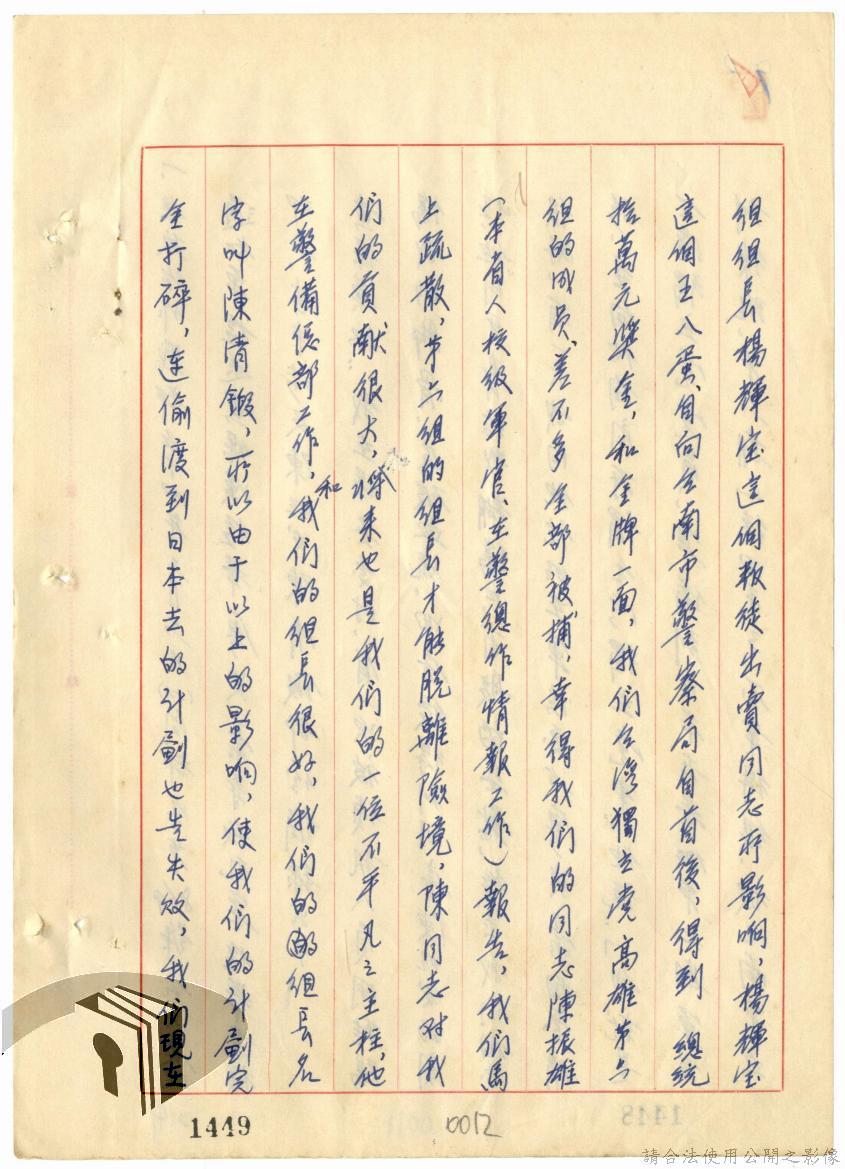 組組長楊輝宝這個叛徒出賣同志所影响，楊輝宝
這個王八蛋、自向台南市警察局自首後，得到 總統
拾萬元獎金，和金牌一面，我們台湾獨立党高雄第六
組的成員、差不多全部被捕，幸得我們的同志陳振雄
（本省人校級軍官、在警總作情報工作）報告，我們馬
上疏散，第六組的組長才能脱離險境，陳同志对我
們的貢献很大，將来也是我們的一位不平凡之主柱，他
在警備總部工作，和我們的組長很好，我們的組長名
字叫陳清鍛，所以由于以上的影响，使我們的計劃完
全打碎，連偷渡到日本去的計劃也告失敗，我們現在
1449
0012
請合法使用公開之影像